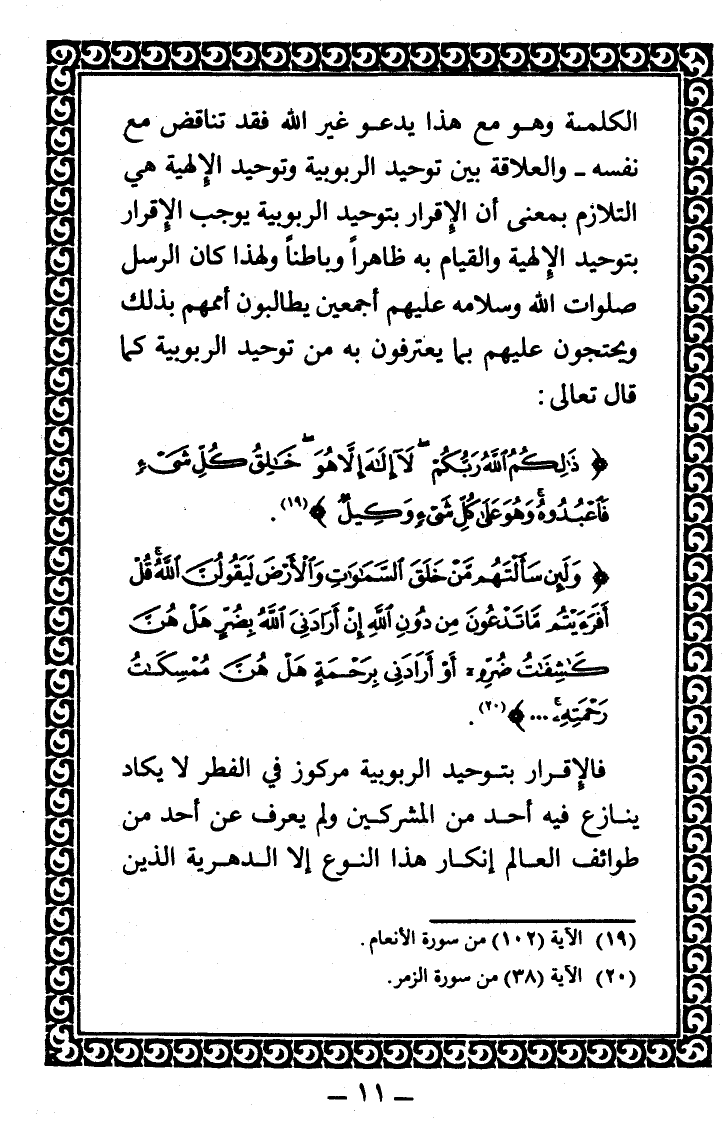 الكلمة وهو مع هذا يدعو غير الله فقد تناقض مع
نفسه - والعلاقة بين توحيد الربوبية وتوحيد الإلهية هي
التلازم بمعنى أن الإقرار بتوحيد الربوبية يوجب الإقرار
بتوحيد الإلهية والقيام به ظاهراً وباطناً ولهذا كان الرسل
صلوات الله وسلامه عليهم أجمعين يطالبون أممهم بذلك
ويحتجون عليهم بما يعترفون به من توحيد الربوبية كما
قال تعالى :
﴿ ذَٰلِكُمُ ٱللَّهُ رَبُّكُمْ ۖ لَآ إِلَٰهَ إِلَّا هُوَ ۖ خَٰلِقُ كُلِّ شَىْءٍ
فَٱعْبُدُوهُ ۚ وَهُوَ عَلَىٰ كُلِّ شَىْءٍ وَكِيلٌ ﴾(١٩) .
﴿ وَلَئِن سَأَلْتَهُم مَّنْ خَلَقَ ٱلسَّمَٰوَٰتِ وَٱلْأَرْضَ لَيَقُولُنَّ ٱللَّهُ ۚ قُلْ
أَفَرَءَيْتُم مَّا تَدْعُونَ مِن دُونِ ٱللَّهِ إِنْ أَرَادَنِىَ ٱللَّهُ بِضُرٍّ هَلْ هُنَّ
كَٰشِفَٰتُ ضُرِّهِۦٓ أَوْ أَرَادَنِى بِرَحْمَةٍ هَلْ هُنَّ مُمْسِكَٰتُ
رَحْمَتِهِۦ ۚ ... ﴾(٢٠) .
فالإقرار بتوحيد الربوبية مركوز في الفطر لا يكاد
ينازع فيه أحد من المشركين ولم يعرف عن أحد من
طوائف العالم إنكار هذا النوع إلا الدهرية الذين
(١٩) الآية (١٠٢) من سورة الأنعام .
(٢٠) الآية (٣٨) من سورة الزمر .
— ١١ —